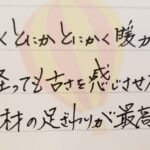 くとにかくとにかく暖か
経っても古さを感じさせ
材の足ざわりが最高